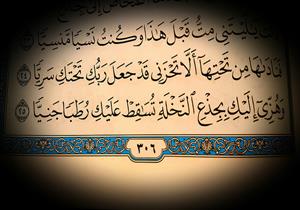 يَٰلَيۡتَنِي مِتُّ قَبۡلَ هَٰذَا وَكُنتُ نَسۡيٗا مَّنسِيّٗا
فَنَادَىٰهَا مِن تَحۡتِهَآ أَلَّا تَحۡزَنِي قَدۡ جَعَلَ رَبُّكِ تَحۡتَكِ سَرِيّٗا ٢٤
وَهُزِّيٓ إِلَيۡكِ بِجِذۡعِ ٱلنَّخۡلَةِ تُسَٰقِطۡ عَلَيۡكِ رُطَبٗا جَنِيّٗا ٢٥
٣٠٦